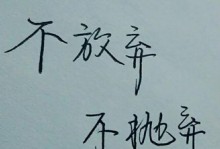 不放弃
不抛弃